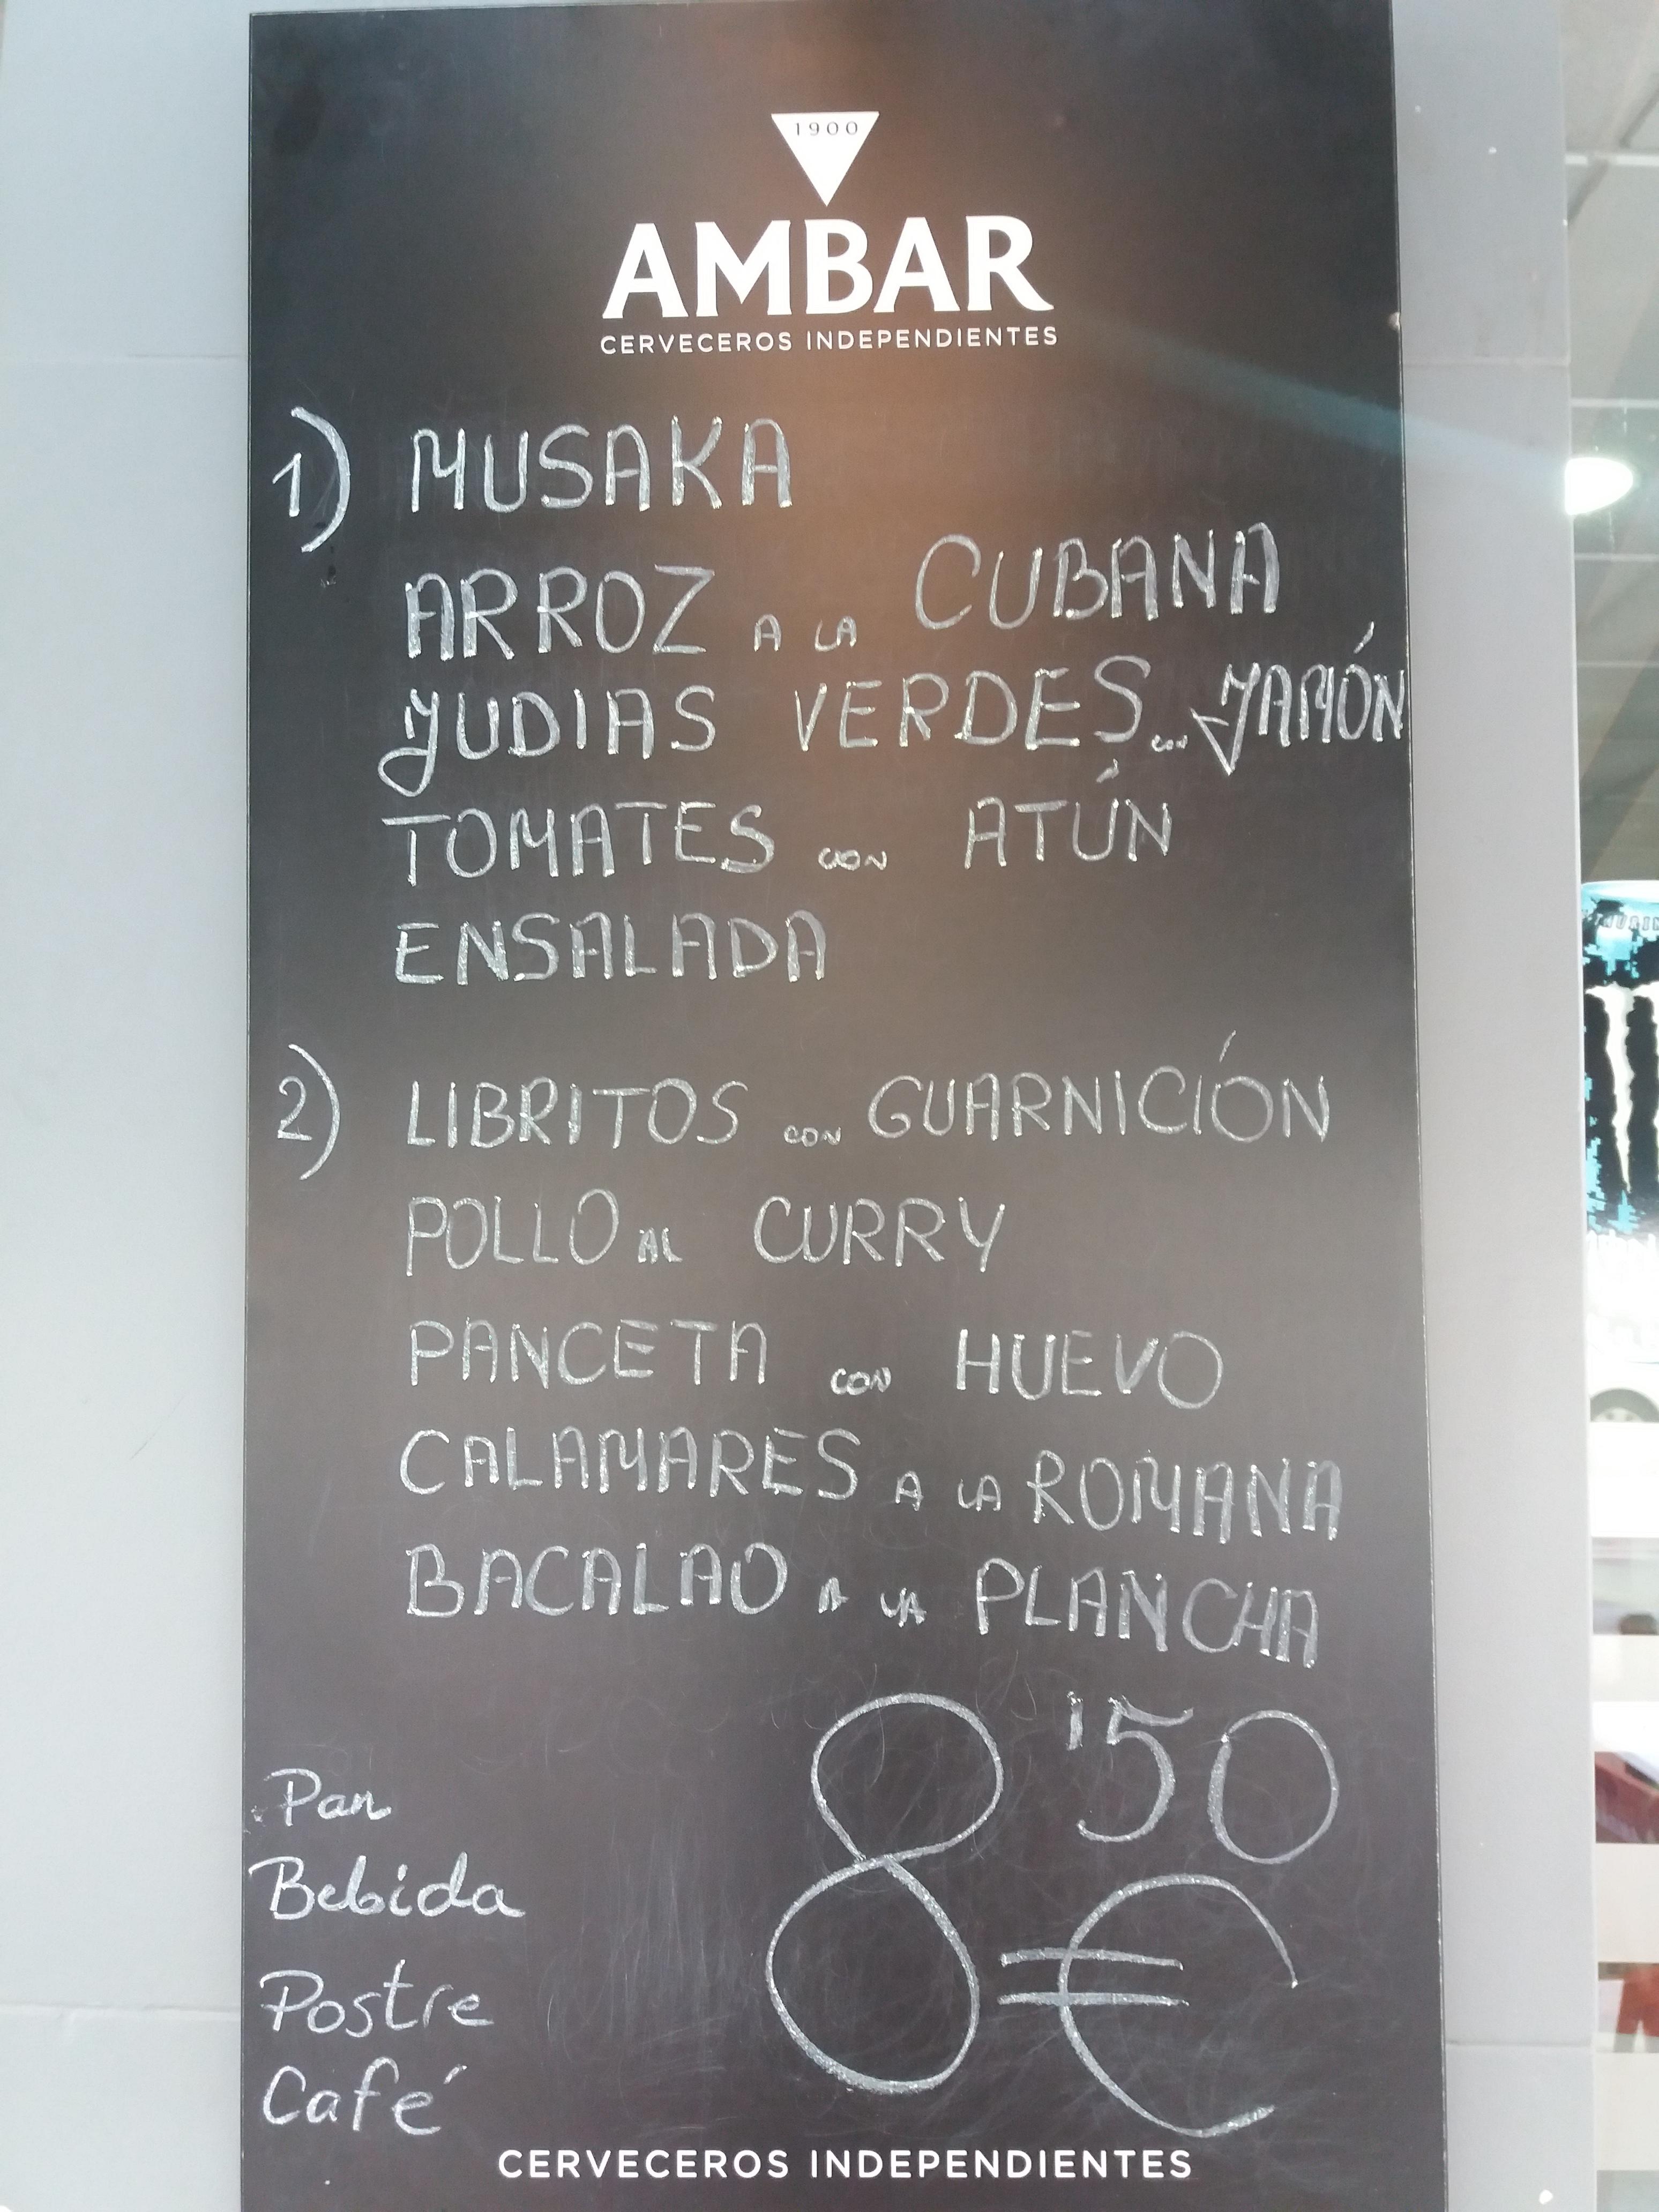 1900
AMBAR
CERVECEROS INDEPENDIENTES
1) MUSAKA
ARROZ A LA CUBANA
JUDIAS VERDES con JAMÓN
TOMATES con ATÚN
ENSALADA
2) LIBRITOS con GUARNICIÓN
POLLO AL CURRY
PANCETA con HUEVO
CALAMARES A LA ROMANA
BACALAO A LA PLANCHA
8'50 €
Pan
Bebida
Postre
Café
CERVECEROS INDEPENDIENTES